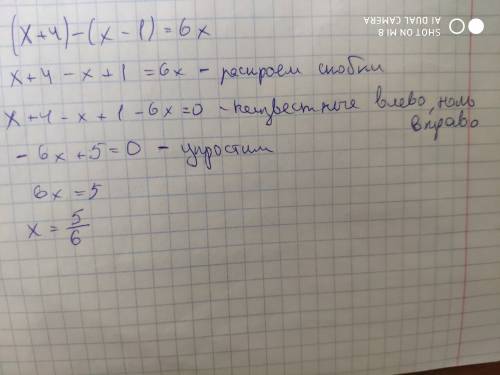 (x+4)-(x-1)=6x
x+4-x+1=6x - раскроем скобки
x+4-x+1-6x=0 - неизвестные влево, ноль
вправо
-6x+5=0 - упростим
6x=5
x=5/6
SHOT ON MI 8
AI DUAL CAMERA